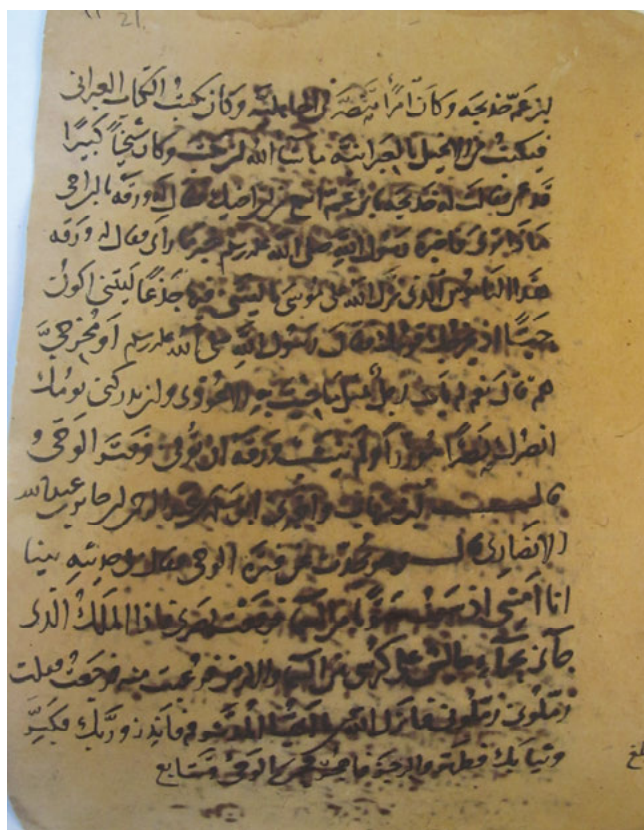 21
بن عم خديجه وكان امرأ تنصر في الجاهلية وكان يكتب الكتاب العبراني
فيكتب من الانجيل بالعبرانيه ما شا الله ان يكتب وكان شيخاً كبيرا
قد عمى فقالت له خديجه يا بن عم اسمع من ابن اخيك فقال له ورقه يا ابن اخى
ماذا ترى فاخبره رسول الله صلى الله عليه وسلم خبر ما رأى فقال له ورقه
هذا الناموس الذى نزل الله على موسى يا ليتنى فيها جذعاً ليتنى اكون
حيّاً اذ يخرجك قومك فقال رسول الله صلى الله عليه وسلم أو مخرجيّ
هم قال نعم لم يات رجل بمثل ما جيت به الا عودى وان يدركنى يومك
انصرك نصراً مؤزراً ولم ينشب ورقه ان توفى وفتر الوحى و
قال ابن شهاب واخبرنى ابو سلمه بن عبد الرحمن ان جابر بن عبد الله
الانصارى قال وهو يحدث عن فترة الوحى فقال فى حديثه بينا
انا امشى اذ سمعت صوتاً من السما فرفعت بصرى فاذا الملك الذى
جآنى بحرآء جالس على كرسى بين السما والارض فرعبت منه فرجعت فقلت
زملونى زملونى فانزل الله يا ايها المدثر قم فانذر وربك فكبّر
وثيابك فطهر والرجز فاهجر فحمى الوحى وتتابع
بلغ